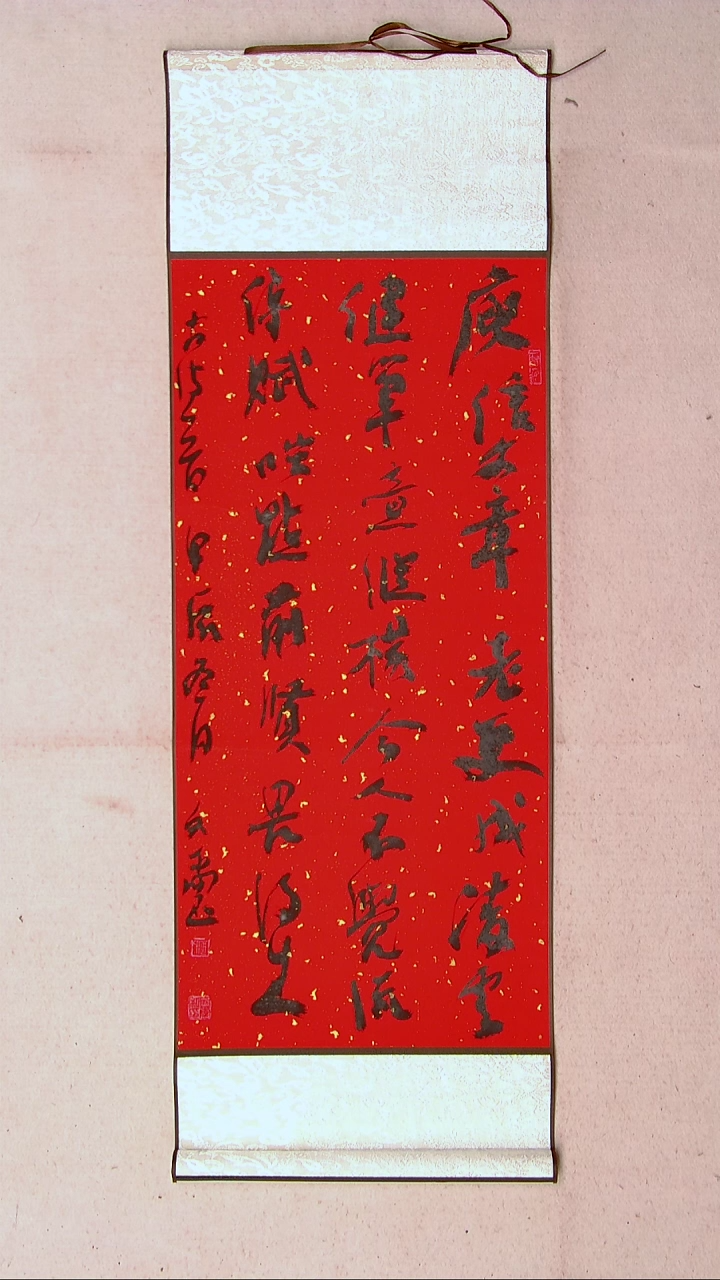 庾信文章老更成凌云
健筆意縱橫今人不覺流
傳賦嗤點前賢畏後生
古詩一首 甲辰